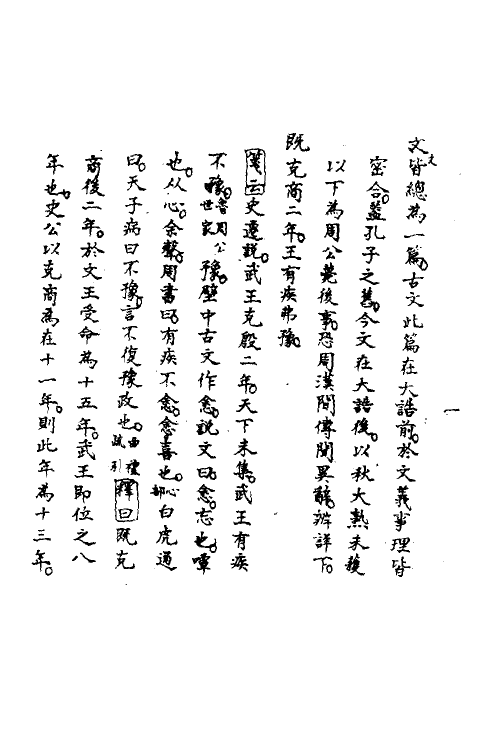 文皆總為一篇古文此篇在大誥前於文義事理皆
密合蓋孔子之舊今文在大誥後以秋大熟未穫
以下為周公薨後事恐周漢閒傳聞異辭辨詳下
既克商二年王有疾弗豫
箋云史遷說武王克殷二年天下未集武王有疾
不豫魯周公世家豫壁中古文作悆說文曰悆忘也嘾
也从心余聲周書曰有疾不悆悆喜也心部白虎通
曰天子病曰不豫言不復豫政也曲禮疏引釋曰既克
商後二年於文王受命為十五年武王即位之八
年也史公以克商為在十一年則此年為十三年
一